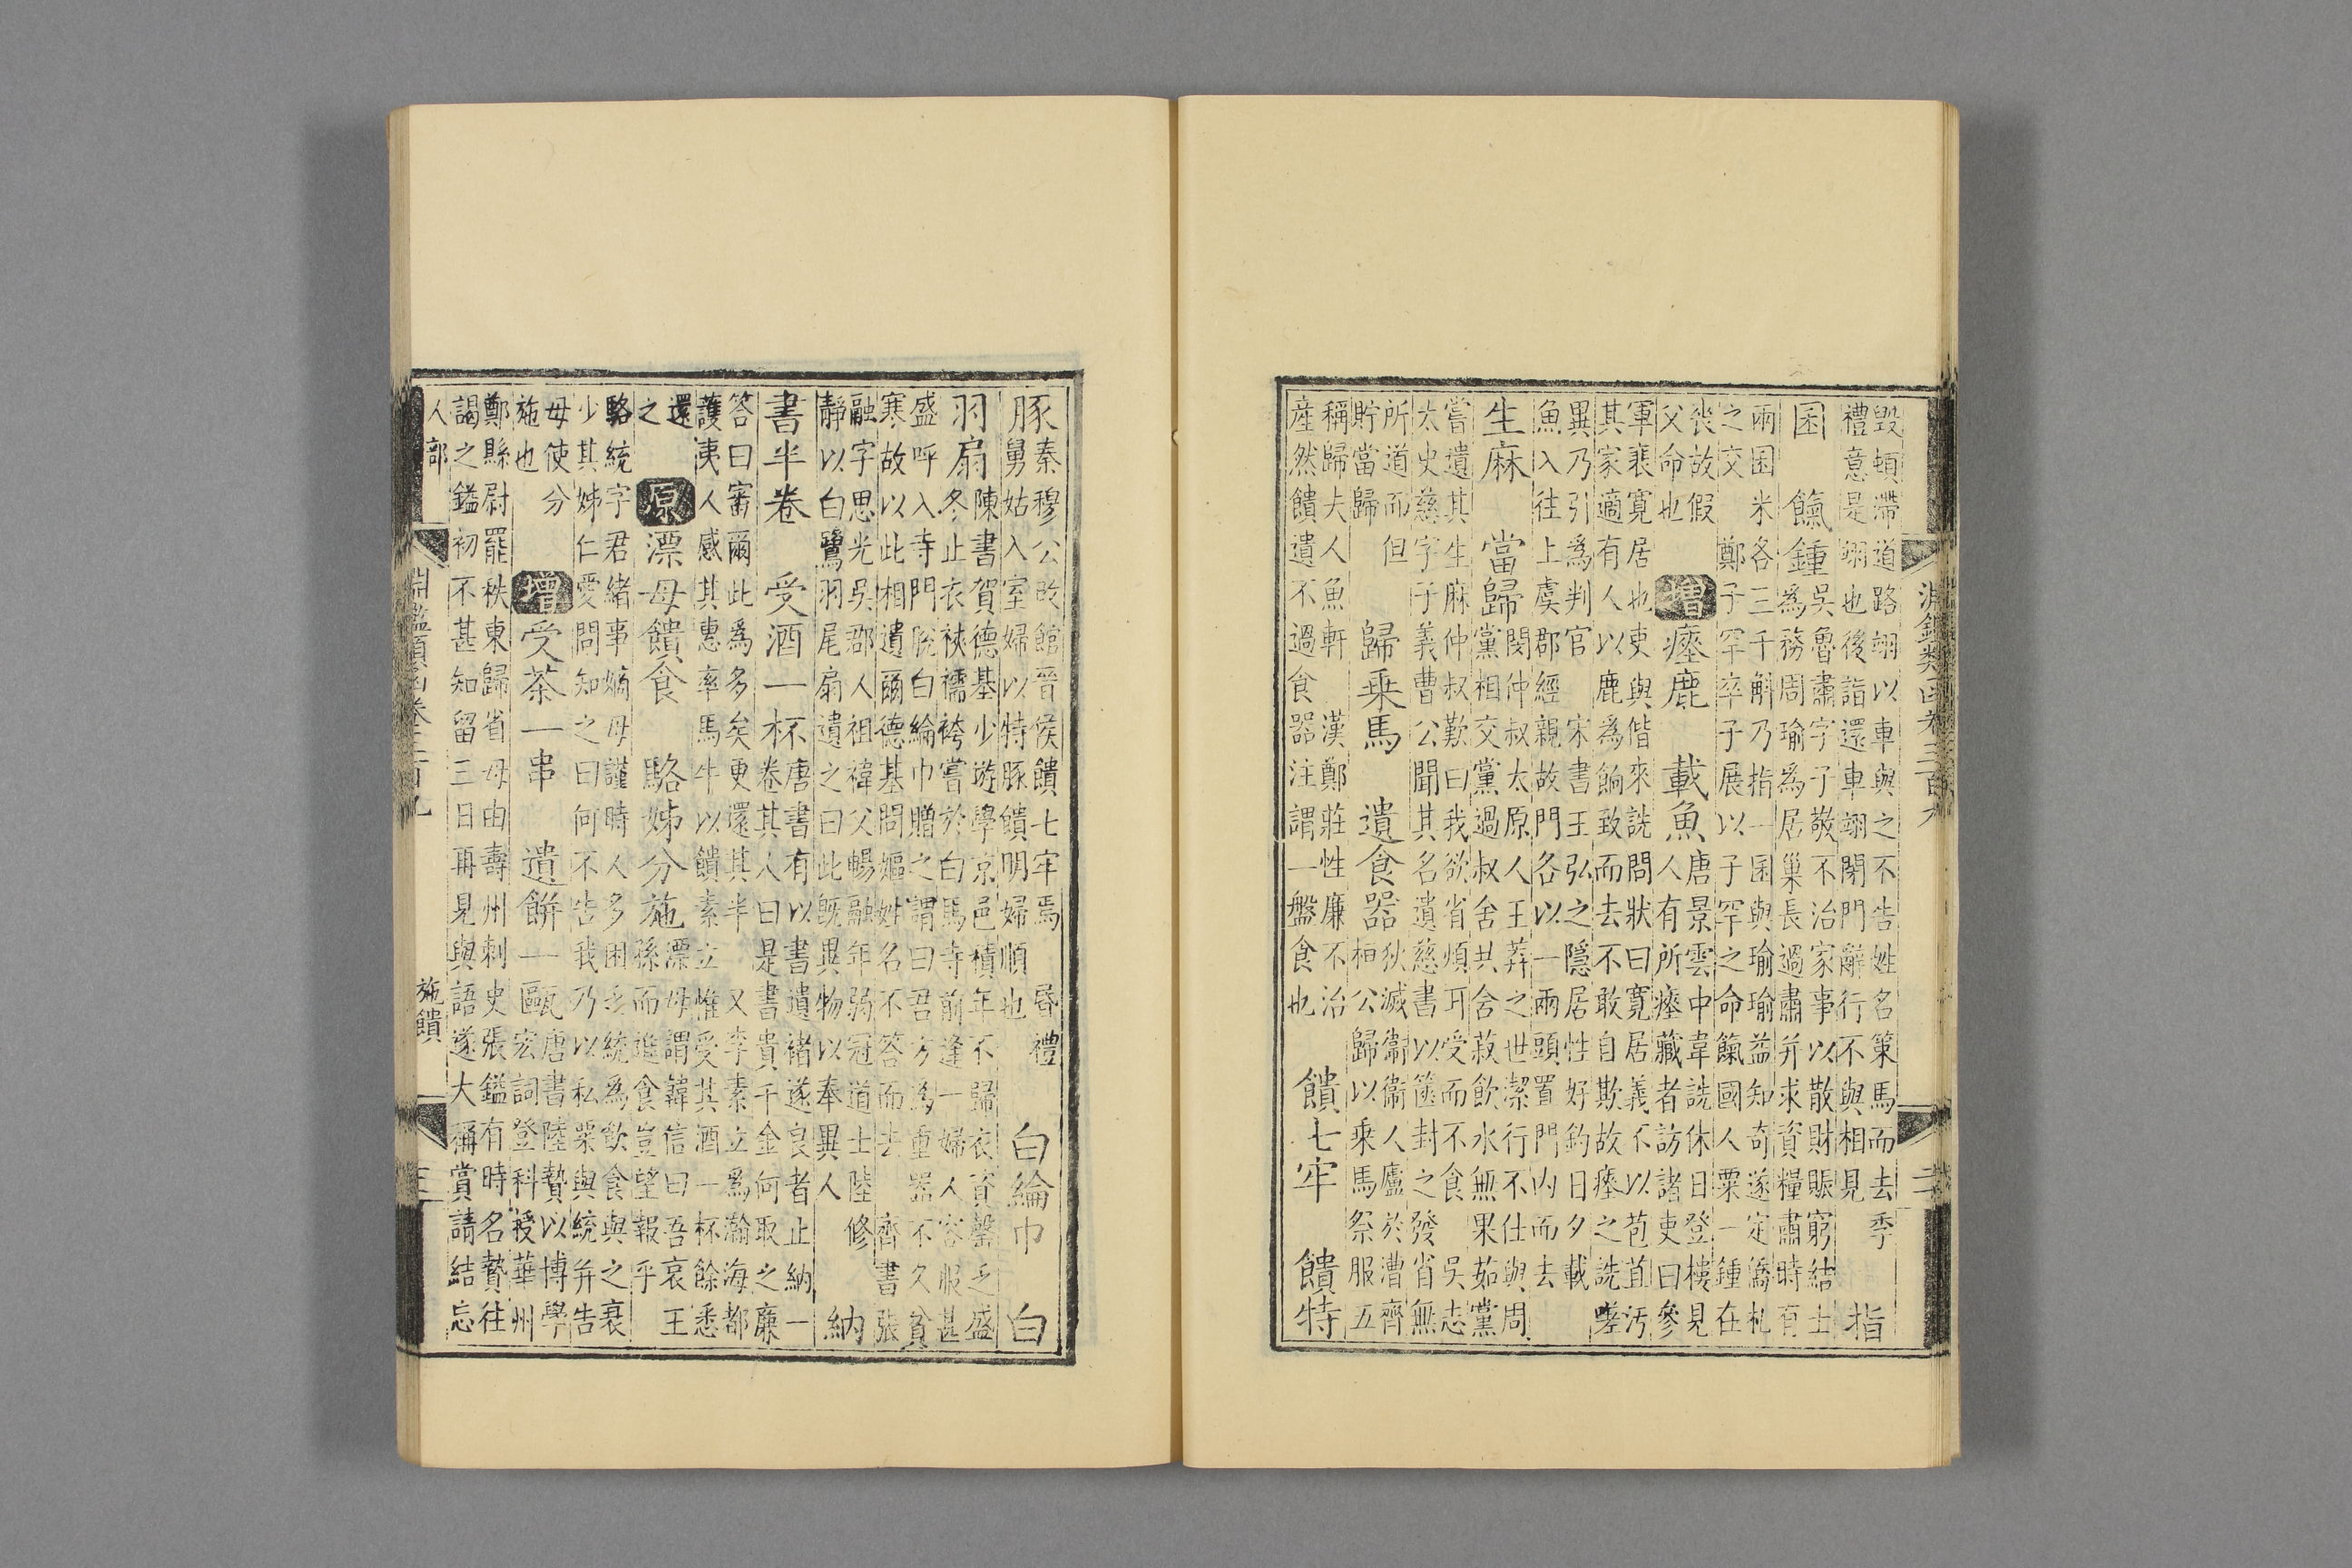 淵鑑類函卷三百九 二
毀頓滯道路翊以車與之不告姓名策馬而去季
禮意是翊也後詣還車翊閉門辭行不與相見
指
囷 餼鍾
吳魯肅字子敬不治家事以散財賑窮結士
爲務周瑜爲居巢長過肅并求資糧肅時有
兩囷米各三千斛乃指一囷與瑜瑜益知奇遂定僑札
之交 鄭子罕卒子展以子罕之命餼國人粟一鍾在
喪故假
父命也
增 瘞鹿 載魚
唐景雲中韋詵休日登樓見
人有所瘞藏者訪諸吏曰參
軍裴寬居也吏與偕來詵問狀曰寬居義不以苞苴汚
其家適有人以鹿爲餉致而去不敢自欺故瘞之詵嗟
異乃引爲判官 宋書王弘之隱居性好釣日夕載
魚入往上虞郡經親故門各以一兩頭置門内而去
生麻 當歸
閔仲叔太原人王莽之世潔行不仕與周
黨相交黨過叔舍共舍菽飲水無果茹黨
嘗遺其生麻仲叔歎曰我欲省煩耳受而不食 吳志
太史慈字子義曹公聞其名遺慈書以篋封之發省無
所道而但
貯當歸
歸乘馬 遺食器
狄滅衞衞人廬於漕齊
桓公歸以乘馬祭服五
稱歸夫人魚軒 漢鄭莊性廉不治
産然饋遺不過食器注謂一盤食也
饋七牢 饋特
豚
秦穆公改館晉侯饋七牢焉 昏禮
舅姑入室婦以特豚饋明婦順也
白綸巾 白
羽扇
陳書賀德基少遊學京邑積年不歸衣資罄乏盛
冬止衣裌襦袴嘗於白馬寺前逢一婦人容服甚
盛呼入寺門脫白綸巾贈之謂曰君方爲重器不久貧
寒故以此相遺爾德基問嫗姓名不答而去 齊書張
融字思光吳郡人祖禕父暢融年弱冠道士陸修
靜以白鷺羽尾扇遺之曰此既異物以奉異人
納
書半卷 受酒一杯
唐書有以書遺褚遂良者止納一
卷其人曰是書貴千金何取之廉
答曰審爾此爲多矣更還其半 又李素立爲瀚海都
護夷人感其惠率馬牛以饋素立惟受其酒一杯餘悉
還
之
原 漂母饋食 駱姊分施
漂母謂韓信曰吾哀王
孫而進食豈望報乎
駱統字君緒事嫡母謹時人多困乏統爲飲食與之衰
少其姊仁愛問知之曰何不告我乃以私粟與統并告
母使分
施也
增 受茶一串 遺餅一甌
唐書陸贄以博學
宏詞登科授華州
鄭縣尉罷秩東歸省母由壽州刺史張鎰有時名贄往
謁之鎰初不甚知留三日再見與語遂大稱賞請結忘
人部 施饋
淵鑑類函卷三百九 三